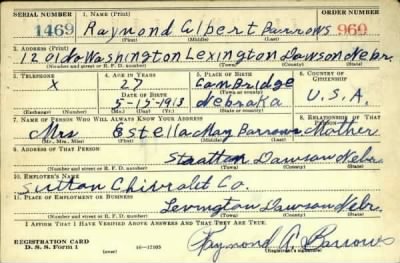 SERIAL NUMBER 1. NAME (Print) ORDER NUMBER
1469 Raymond Albert Barrows 960
(First) (Middle) (Last)
2. ADDRESS (Print)
1201 do Washington Lexington Dawson Nebr.
(Number and street or R. F. D. number) (Town) (County) (State)
3. TELEPHONE 4. AGE IN YEARS 5. PLACE OF BIRTH 6. COUNTRY OF CITIZENSHIP
X 27 Cambridge
DATE OF BIRTH (Town or county)
5-15-1913 Nebraka U.S.A.
(Exchange) (Number) (Mo.) (Day) (Yr.) (State or country)
7. NAME OF PERSON WHO WILL ALWAYS KNOW YOUR ADDRESS 8. RELATIONSHIP OF THAT PERSON
Mrs Estella May Barrows Mother
(Mr., Mrs., Miss) (First) (Middle) (Last)
9. ADDRESS OF THAT PERSON
Stratton Dawson Nebr
(Number and street or R. F. D. number) (Town) (County) (State)
10. EMPLOYER'S NAME
Sutton Chivrolet Co.
11. PLACE OF EMPLOYMENT OR BUSINESS
Lexington Dawson Nebr.
(Number and street or R. F. D. number) (Town) (County) (State)
I AFFIRM THAT I HAVE VERIFIED ABOVE ANSWERS AND THAT THEY ARE TRUE.
REGISTRATION CARD
D. S. S. Form 1 (over) 16—17105
Raymond A. Barrows
(Registrant's signature)